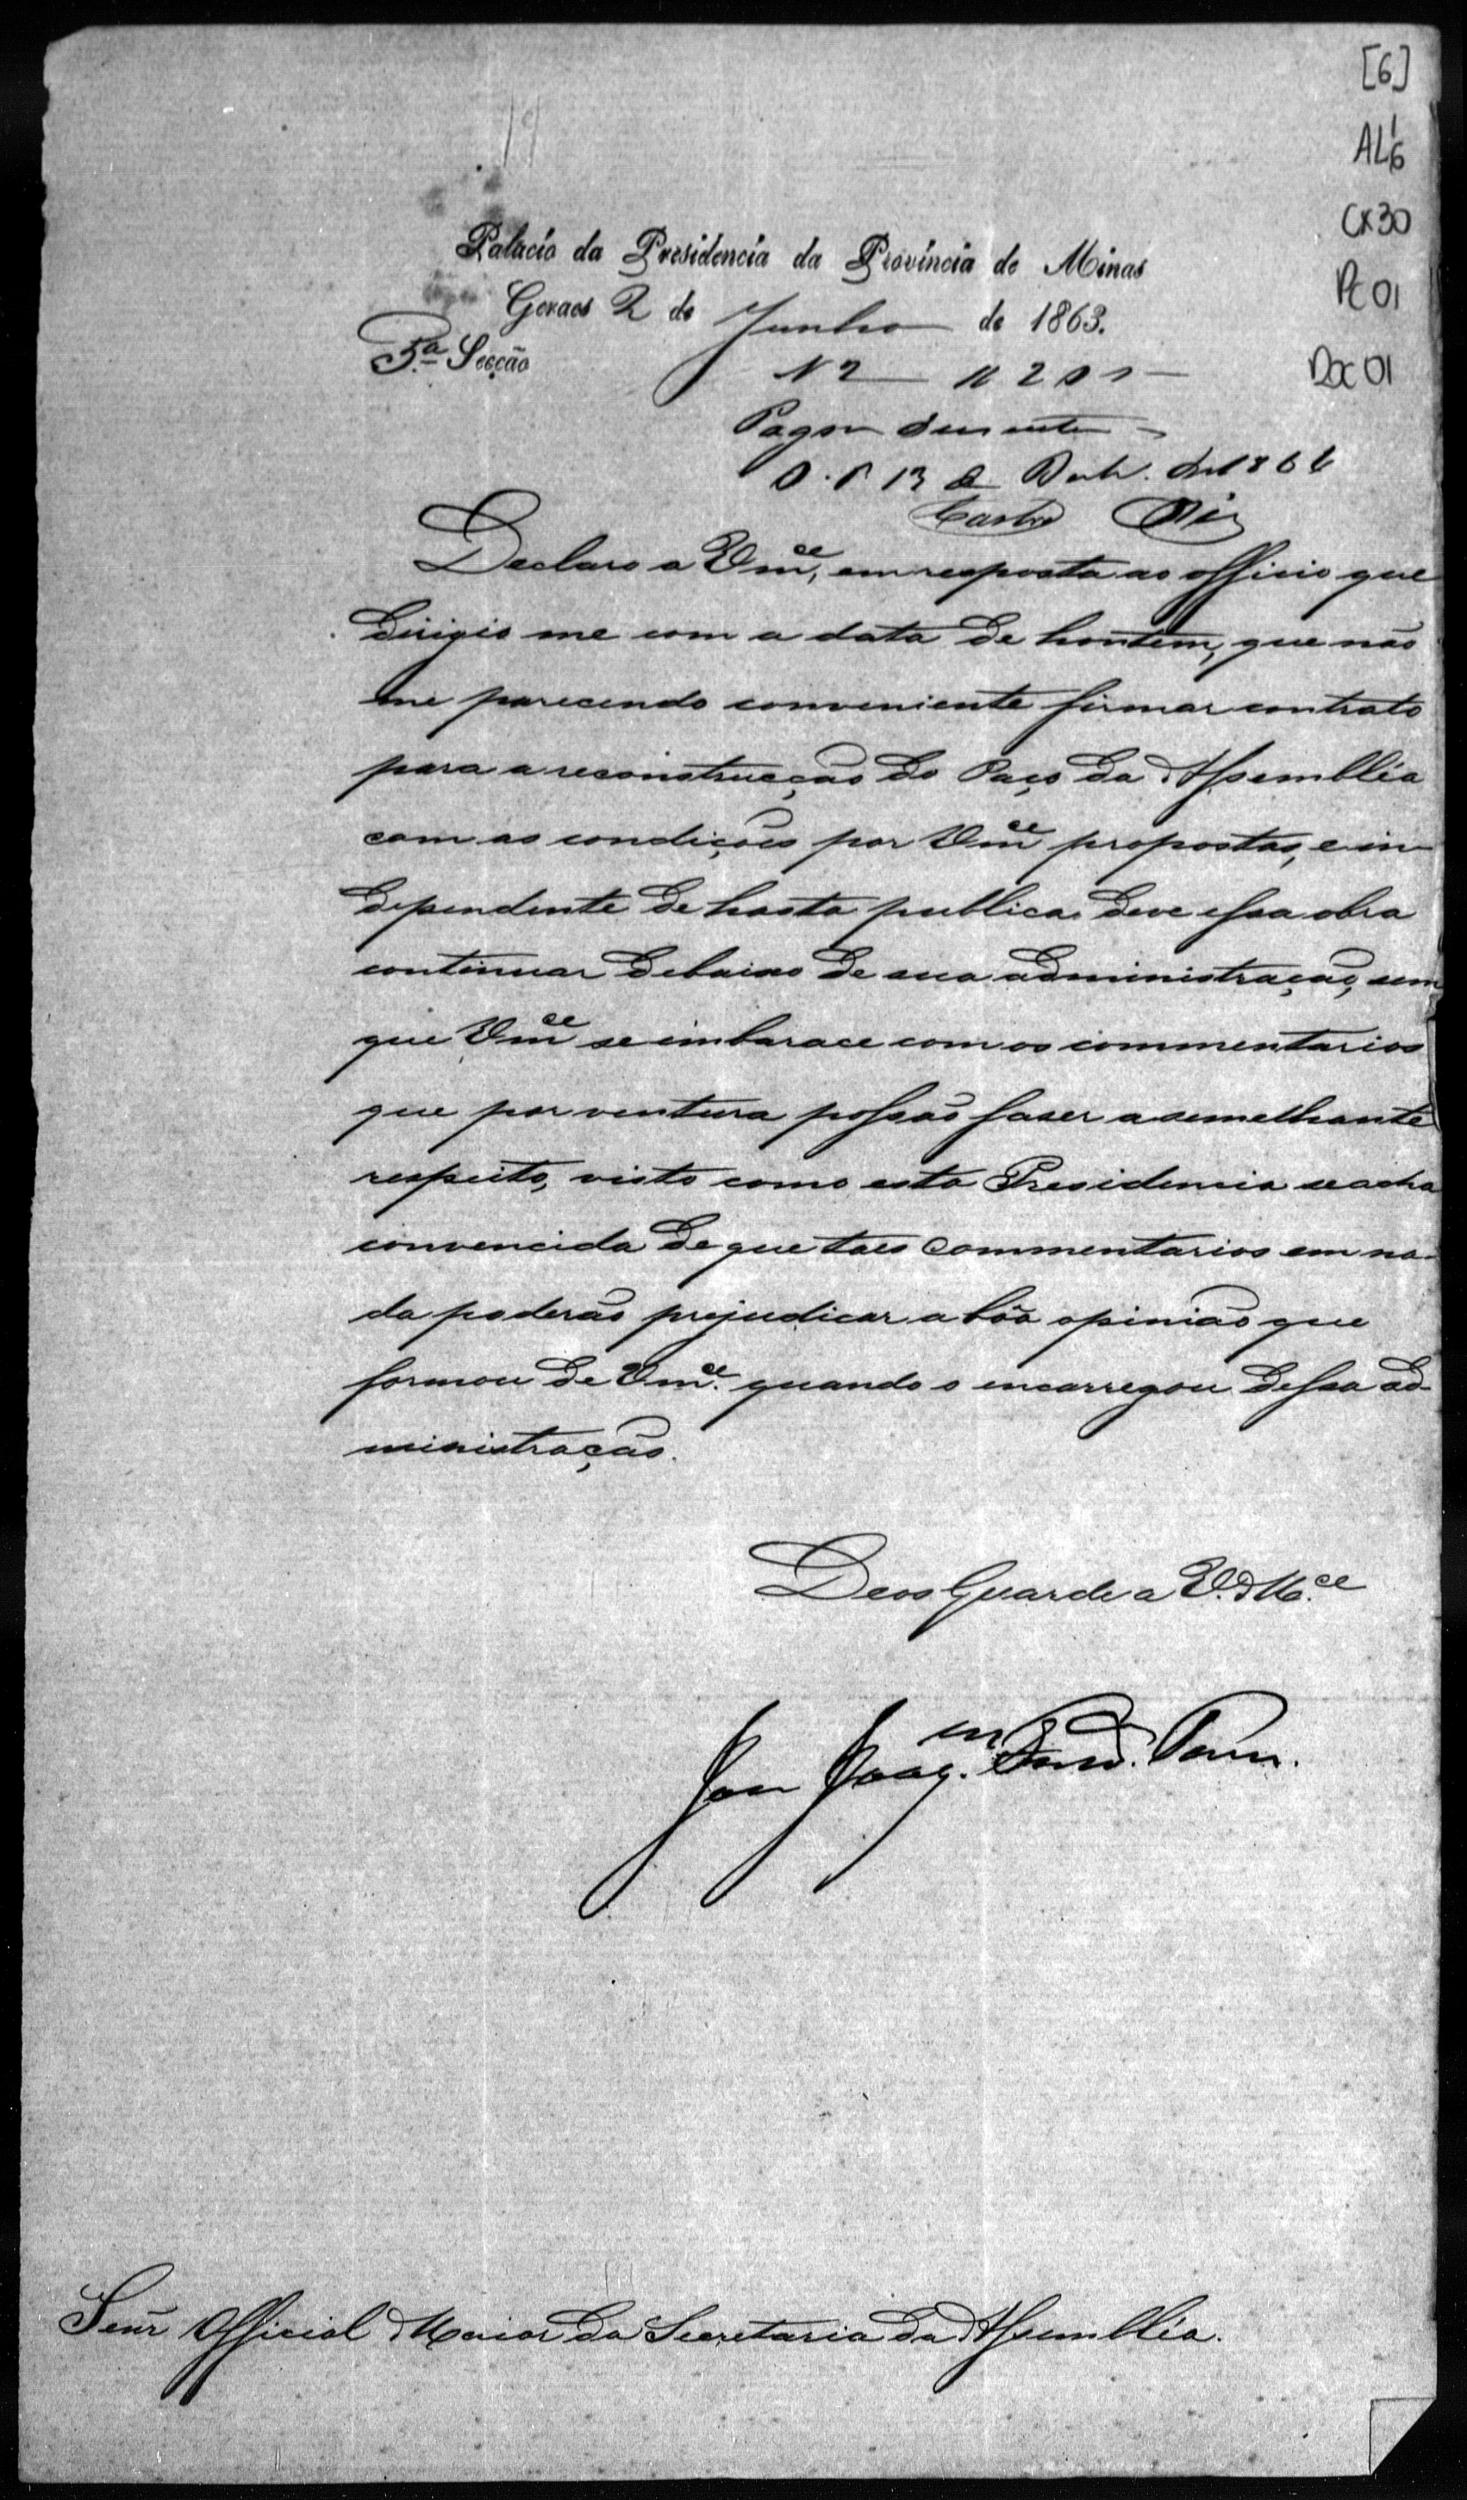 [6]
AL 1/6
CX30
PC 01
Doc 01
19
Palacio da Presidencia da Provincia de Minas
Geraes 2 de Junho de 1863.
3.ª Secção
N 2
Pagou
O. P. 13 de 186
Castro
Declaro a Vm.ce, em resposta ao officio que
dirigio me com a data de hontem, que não
me parecendo conveniente firmar contrato
para a reconstrucção do Paço da Assembléa
com as condições por Vm.ce propostas, e in-
dependente de hasta publica, deve essa obra
continuar debaixo de sua administração, sem
que Vm.ce se embarace com os commentarios
que por ventura possão faser a semelhante
respeito, visto como esta Presidencia se acha
convencida de que taes commentarios em na-
da poderáõ prejudicar a bôa opinião que
formou de Vm.ce quando o encarregou dessa ad-
ministração.
Deos Guarde a V. M.ce
João Joaq.m
Senr Official Maior da Secretaria da Assembléa.